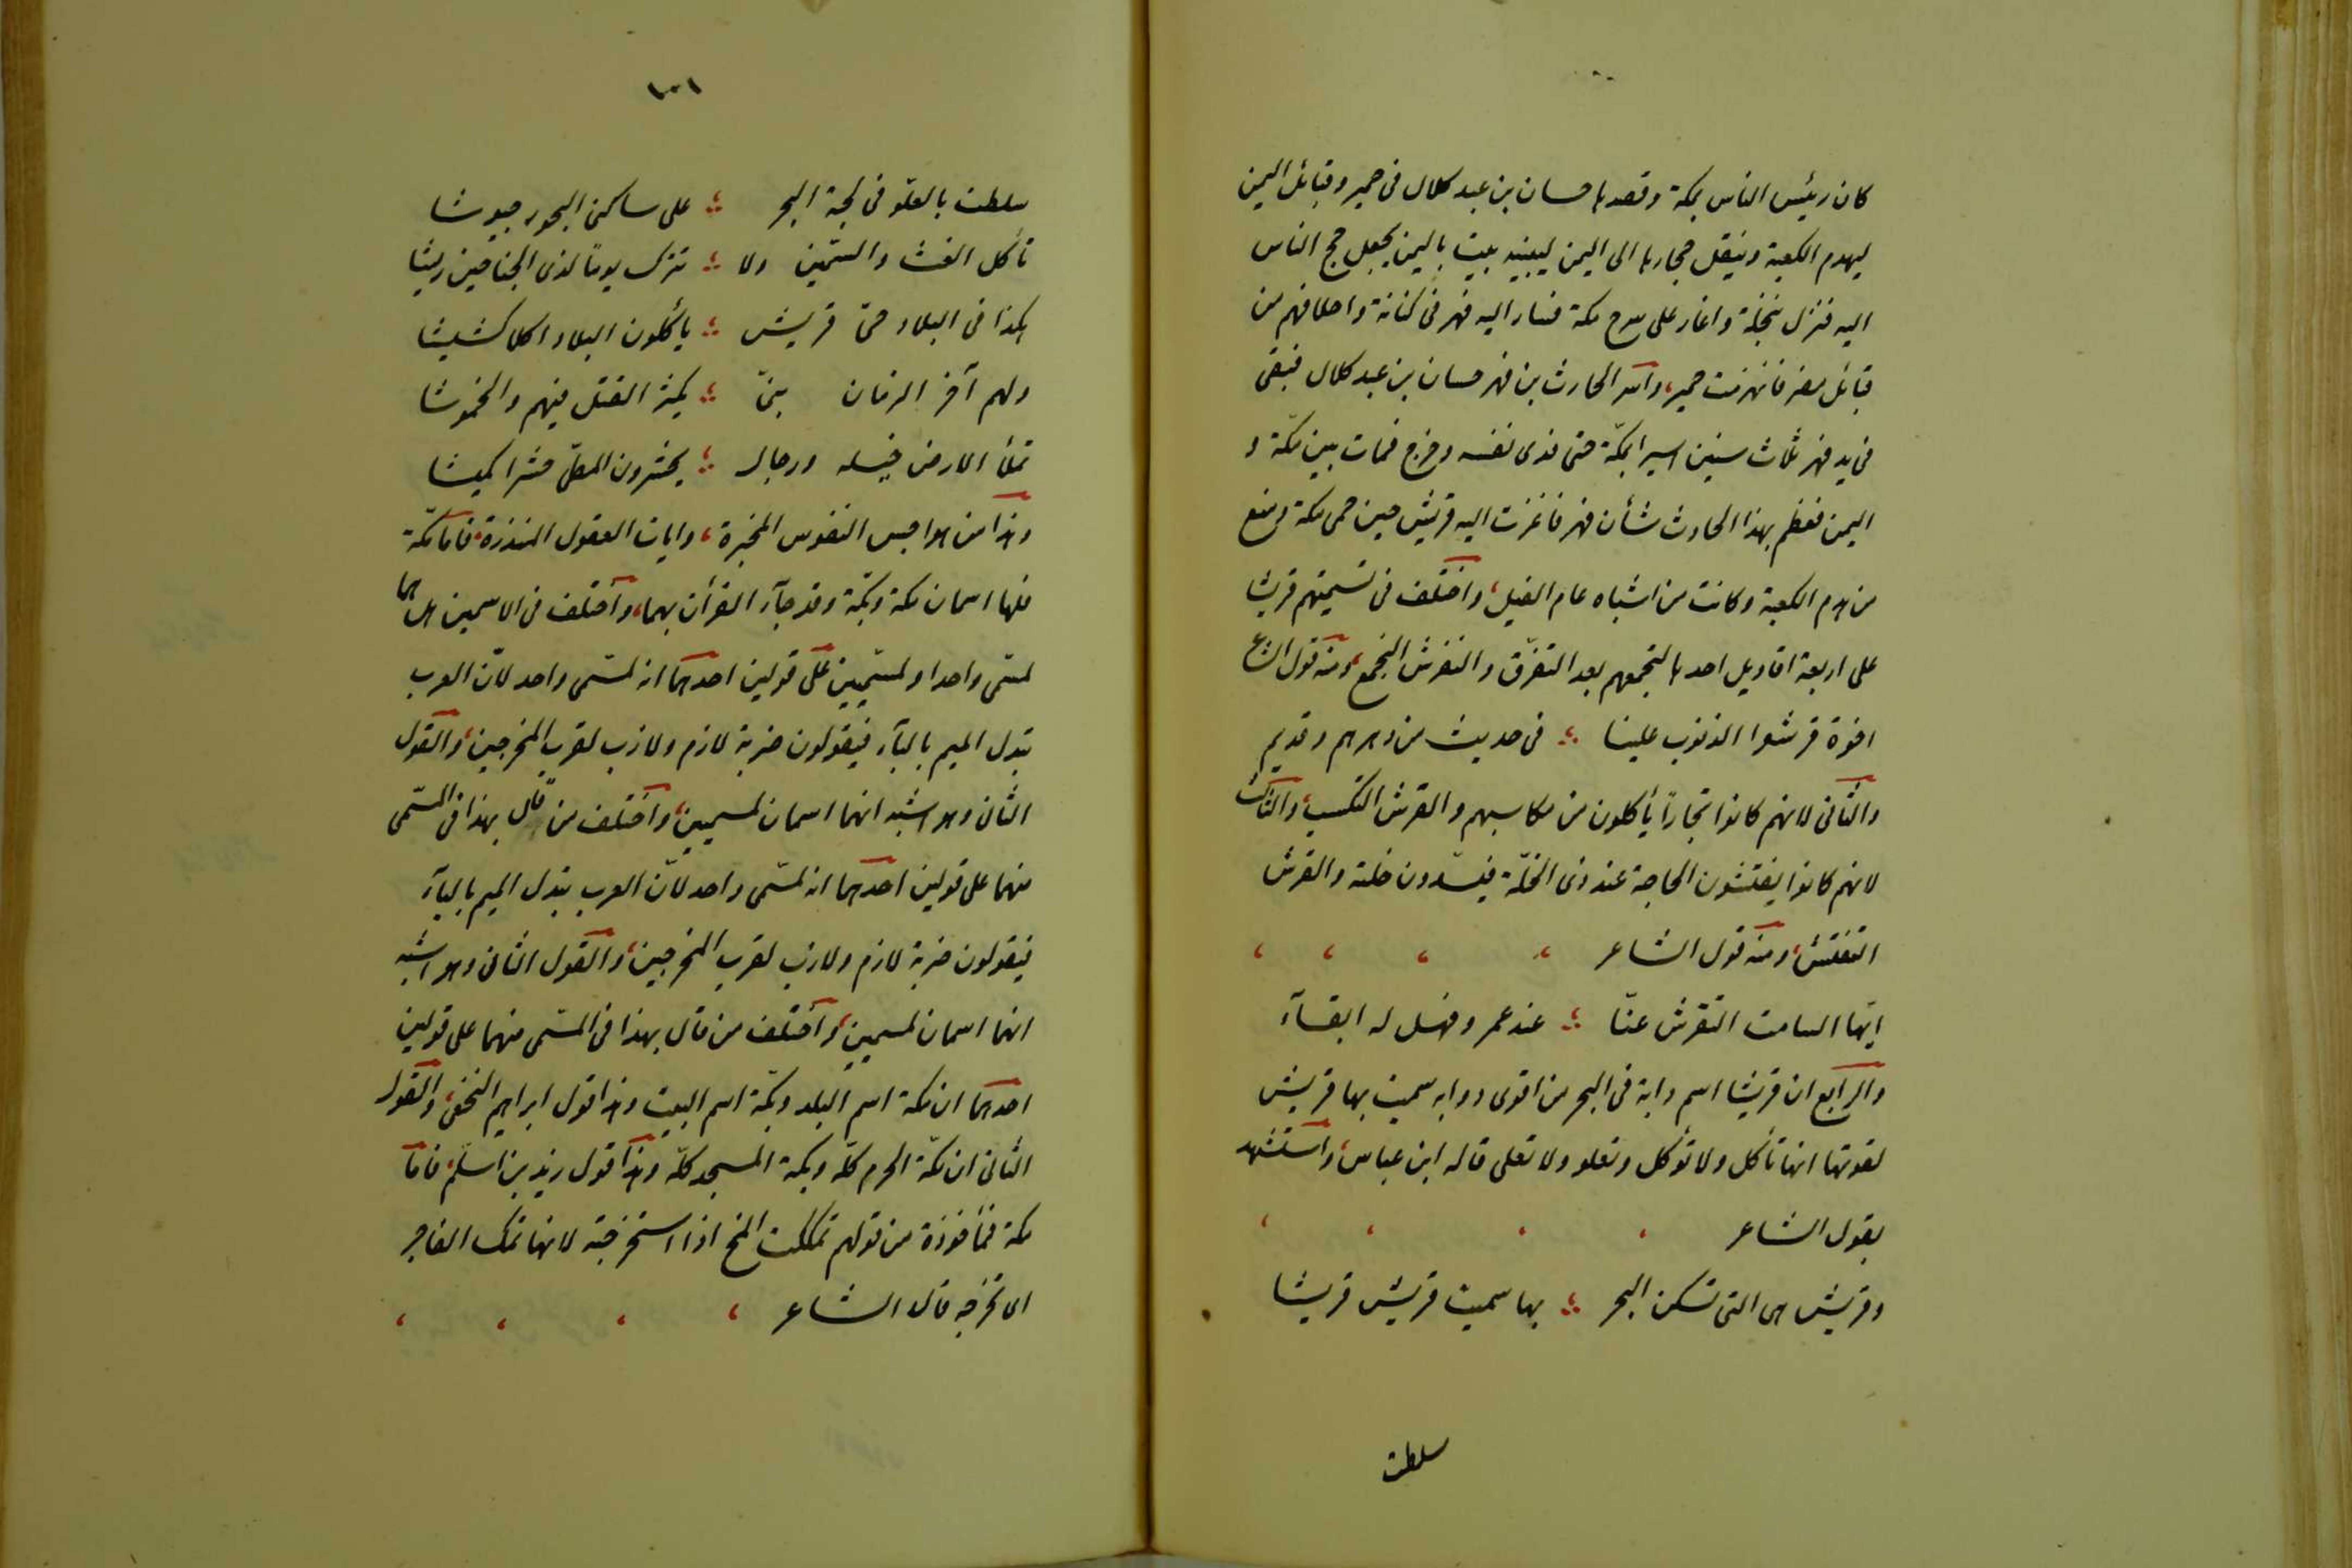 كان رئيس الناس بمكة وقصدها حسان بن عبد كلال فى حمير وقبائل اليمن
ليهدم الكعبة وينقل حجارها الى اليمن ليبنيه بيت باليمن يجعل حج الناس
اليه فنزل بنخلة واغار على سرح مكة فسار اليه فهر فى كنانة واحلافهم من
قبائل مضر فانهزمت حمير، واسر الحارث بن فهر حسان بن عبد كلال فبقى
فى يد فهر ثلاث سنين اسيرا بمكة حتى فدى نفسه وخرج فمات بين مكة و
اليمن فعظم بهذا الحادث شأن فهر فاغزت اليه قريش حين حمى مكة ومنع
من هدم الكعبة وكانت من اشباه عام الفيل، واختلف فى تسميتهم قريشا
على اربعة اقاويل احدها لتجمعهم بعد التفرق والتقرش التجمع، ومنه قول الشاعر
اخوة قرشوا الذنوب علينا ؛ فى حديث من دهرهم وقديم
والثانى لانهم كانوا تجاراً يأكلون من مكاسبهم والقرش التكسب، والثالث
لانهم كانوا يفتشون الحاجة عند ذى الخلّة فيسدّون خلته والقرش
التفتش، ومنه قول الشاعر ، ، ، ،
ايها السامت التقرش عنّا ؛ عند عمر وفهل له ابقاء
والرابع ان قريشا اسم دابة فى البحر من اقوى دوابه سميت بها قريش
لقوتها انها تأكل ولا تؤكل وتعلو ولا تعلى قاله ابن عباس، واستشهد
بقول الشاعر ، ، ، ،
وقريش هى التى تسكن البحر ؛ بها سميت قريش قريشا
سلطت
١٠١
سلطت بالعلو فى لجة البحر ؛ على ساكن البحور جيوشا
تأكل الغث والسمّين ولا ؛ تترك يوماً لذى الجناحين ريشا
هكذا فى البلاد حىّ قريش ؛ يأكلون البلاد اكلا كشيشا
ولهم آخر الزمان نبىّ ؛ يكثر القتل فيهم والخموشا
تملأ الارض خيله ورجال ؛ يحشرون المطىّ حشرا كميشا
وهذا من هواجس النفوس المخبرة، وايات العقول المنذرة، فاما مكّة
فلها اسمان مكة وبكّة وقد جآء القرأن بهما، وأختلف فى الاسمين هل هما
لمسّمى واحد او لمسّميين على قولين احدهما انه لمسّمى واحد لانّ العرب
تبدل الميم بالبآء فيقولون ضربة لازم ولازب لقرب المخرجين، والقول
الثانى وهو اشبه انهما اسمان لمسميين، واختلف من قال بهذا فى المسّمى
منهما على قولين احدهما انه لمسّمى واحد لانّ العرب تبدل الميم بالبآء
فيقولون ضربة لازم ولازب لقرب المخرجين، والقول الثانى وهو اشبه
انهما اسمان لمسميين، وأختلف من قال بهذا فى المسّمى منهما على قولين
احدهما ان مكة اسم البلد وبكّة اسم البيت وهذا قول ابراهيم النخعى، والقول
الثانى ان مكّة الحرم كلّه وبكة المسجد كلّه وهذا قول زيد بن اسلم، فاما
مكة فمأخوذة من قولهم تمككت المخ اذا استخرجته لانها تمك الفاجر
اى تخرجه قال الشاعر ، ، ، ،